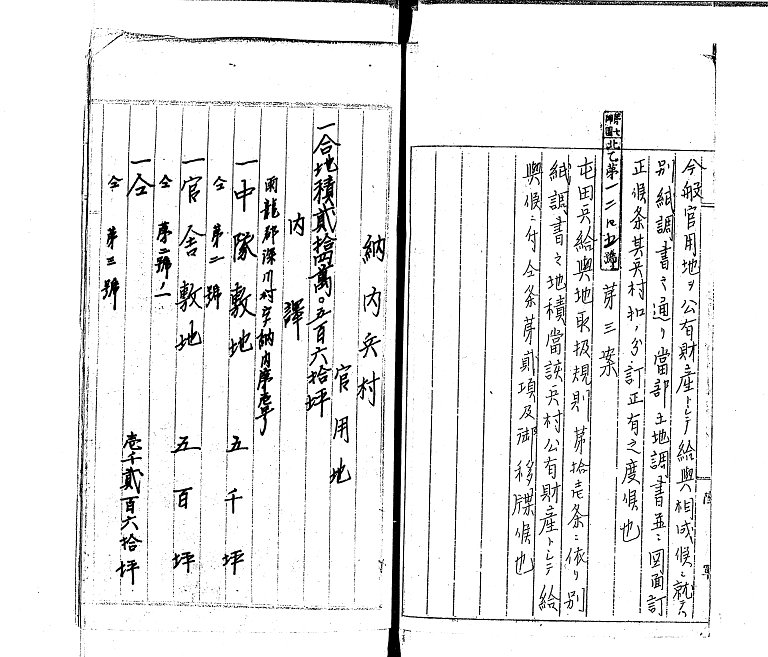 今般官用地ヲ公有財産トシテ給與相成候ニ就テハ
別紙調書之通リ當部土地調書並ニ図面訂
正候条其兵村扣ノ分訂正有之度候也
第七師團 北乙第一二
第三案
屯田兵給與地取扱規則第拾壱条ニ依リ別
紙調書之地積當該兵村公有財産トシテ給
與候ニ付仝条第貳項及御移牒候也
陸軍
納内兵村
官用地
一合地積貳拾四萬〇五百六拾坪
内譯
雨龍郡深川村字納内
一中隊敷地 五千坪
仝 第一號
一官舎敷地 五百坪
仝 第二號ノ一
一仝 壱千貳百六拾坪
仝 第三號